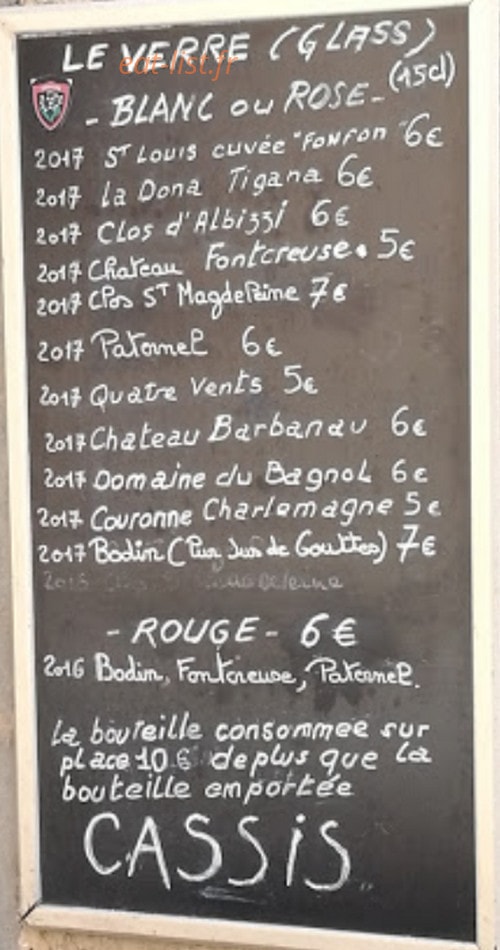 LE VERRE (GLASS)
eat-list.fr
(15cl)
- BLANC ou ROSE -
2017 ST LOUIS cuvée "FONFON" 6€
2017 La Dona Tigana 6€
2017 CLOS d'ALbizzi 6€
2017 Chateau Fontcreuse. 5€
2017 Clos ST Magdeleine 7€
2017 Paternel 6€
2017 Quatre Vents 5€
2017 Chateau Barbanau 6€
2017 Domaine du Bagnol 6€
2017 Couronne Charlemagne 5€
2017 Bodin (Pur Jus de Gouttes) 7€
- ROUGE - 6€
2016 Bodin, Fontcreuse, Paternel.
La bouteille consommee sur
place 10 € de plus que la
bouteille emportée
CASSiS